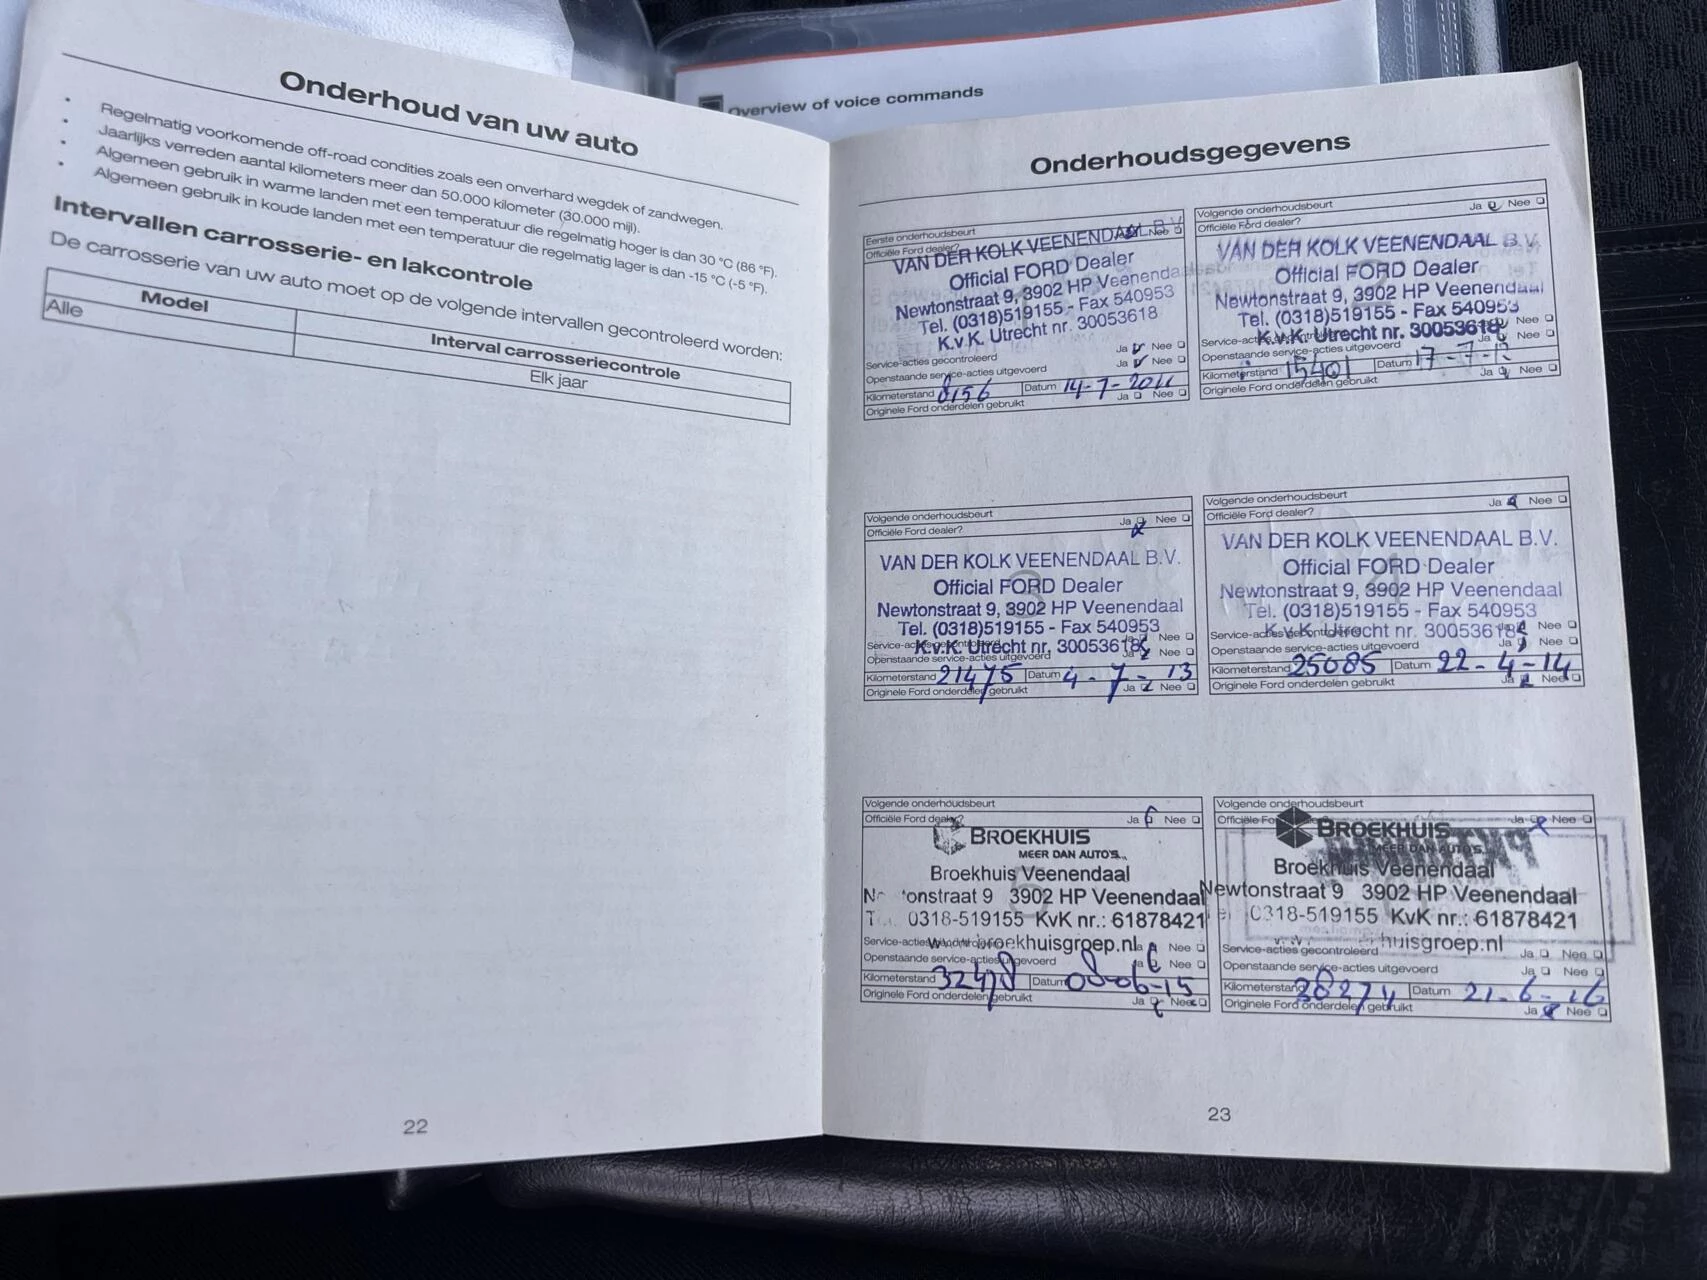 Overview of voice commands
Onderhoud van uw auto
• Regelmatig voorkomende off-road condities zoals een onverhard wegdek of zandwegen.
• Jaarlijks verreden aantal kilometers meer dan 50.000 kilometer (30.000 mijl).
• Algemeen gebruik in warme landen met een temperatuur die regelmatig hoger is dan 30 °C (86 °F).
• Algemeen gebruik in koude landen met een temperatuur die regelmatig lager is dan -15 °C (-5 °F).
Intervallen carrosserie- en lakcontrole
De carrosserie van uw auto moet op de volgende intervallen gecontroleerd worden:
Model Interval carrosseriecontrole
Alle Elk jaar
22
Onderhoudsgegevens
Eerste onderhoudsbeurt
Officiële Ford dealer? Nee
VAN DER KOLK VEENENDAAL B.V.
Official FORD Dealer
Newtonstraat 9, 3902 HP Veenendaal
Tel. (0318)519155 - Fax 540953
K.v.K. Utrecht nr. 30053618
Service-acties gecontroleerd Ja Nee
Openstaande service-acties uitgevoerd Ja Nee
Kilometerstand 8156 Datum 14-7-2011
Originele Ford onderdelen gebruikt Ja Nee
Volgende onderhoudsbeurt
Officiële Ford dealer? Ja Nee
VAN DER KOLK VEENENDAAL B.V.
Official FORD Dealer
Newtonstraat 9, 3902 HP Veenendaal
Tel. (0318)519155 - Fax 540953
K.v.K. Utrecht nr. 30053618
Service-acties gecontroleerd Ja Nee
Openstaande service-acties uitgevoerd Ja Nee
Kilometerstand 15401 Datum 17-7-12
Originele Ford onderdelen gebruikt Ja Nee
Volgende onderhoudsbeurt
Officiële Ford dealer? Ja Nee
VAN DER KOLK VEENENDAAL B.V.
Official FORD Dealer
Newtonstraat 9, 3902 HP Veenendaal
Tel. (0318)519155 - Fax 540953
K.v.K. Utrecht nr. 30053618
Service-acties gecontroleerd Ja Nee
Openstaande service-acties uitgevoerd Ja Nee
Kilometerstand 21475 Datum 4-7-13
Originele Ford onderdelen gebruikt Ja Nee
Volgende onderhoudsbeurt
Officiële Ford dealer? Ja Nee
VAN DER KOLK VEENENDAAL B.V.
Official FORD Dealer
Newtonstraat 9, 3902 HP Veenendaal
Tel. (0318)519155 - Fax 540953
K.v.K. Utrecht nr. 30053618
Service-acties gecontroleerd Ja Nee
Openstaande service-acties uitgevoerd Ja Nee
Kilometerstand 25085 Datum 22-4-14
Originele Ford onderdelen gebruikt Ja Nee
Volgende onderhoudsbeurt
Officiële Ford dealer? Ja Nee
BROEKHUIS
MEER DAN AUTO'S
Broekhuis Veenendaal
Newtonstraat 9 3902 HP Veenendaal
T 0318-519155 KvK nr.: 61878421
www.broekhuisgroep.nl
Service-acties gecontroleerd Ja Nee
Openstaande service-acties uitgevoerd Ja Nee
Kilometerstand 32478 Datum 08-06-15
Originele Ford onderdelen gebruikt Ja Nee
Volgende onderhoudsbeurt
Officiële Ford Ja Nee
BROEKHUIS
MEER DAN AUTO'S
Broekhuis Veenendaal
Newtonstraat 9 3902 HP Veenendaal
0318-519155 KvK nr.: 61878421
huisgroep.nl
Service-acties gecontroleerd Ja Nee
Openstaande service-acties uitgevoerd Ja Nee
Kilometerstand 38274 Datum 21-6-16
Originele Ford onderdelen gebruikt Ja Nee
23